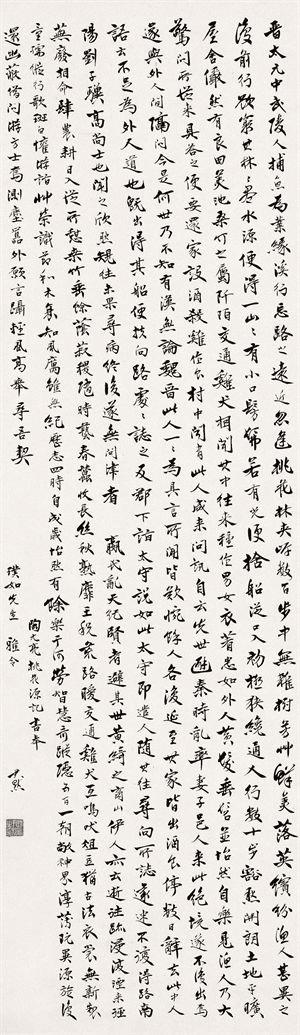 晉太元中武陵人捕魚為業緣溪行忘路之遠近忽逢桃花林夾岸數百步中無雜樹芳艸鮮美落英繽紛漁人甚異之
復前行欲窮其林林盡水源便得一山山有小口髣髴若有光便捨船從口入初極狹纔通人行數十步豁然開朗土地平曠
屋舍儼然有良田美池桑竹之屬阡陌交通雞犬相聞其中往來種作男女衣著悉如外人黃髮垂髫並怡然自樂見漁人乃大
驚問所從來具答之便要還家設酒殺雞作食村中聞有此人咸來問訊自云先世避秦時亂率妻子邑人來此絕境遂不復出焉
遂與外人間隔問今是何世乃不知有漢無論魏晉此人一一為具言所聞皆歎惋餘人各復延至其家皆出酒食停數日辭去此中人
語云不足為外人道也既出得其船便扶向路處處誌之及郡下詣太守說如此太守即遣人隨其往尋向所誌遂迷不復得路南
陽劉子驥高尚士也聞之欣然規往未果尋病終後遂無問津者 嬴氏亂天紀賢者避其世黃綺之商山伊人亦云逝往跡浸復湮來逕
蕪廢相命肆農耕日入從所憩桑竹垂餘蔭菽稷隨時藝春蠶收長絲秋熟靡王稅荒路曖交通雞犬互鳴吠俎豆猶古法衣裳無新製
童孺縱行歌斑白歡游詣艸榮識節和木衰知風厲雖無紀歷志四時自成歲怡然有餘樂于何勞智慧奇蹤隱五百一朝敞神界淳薄既異源旋復
還幽蔽借問游方士焉測塵囂外願言躡輕風高舉尋吾契
陶元亮桃花源記書奉
璞如先生 雅令
尹默